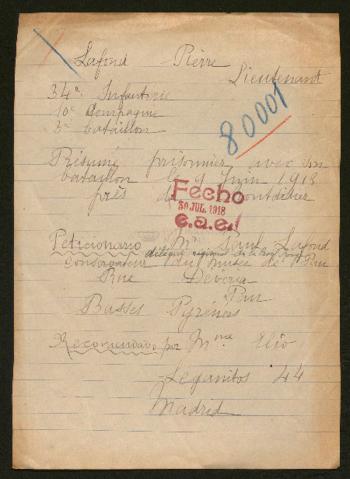 Lafond Pierre
Lieutenant
34e Infanterie
10e Compagnie
3e bataillon
80001
Présumé prisonnier avec son
bataillon le 9 Juin 1918
près de Montdidier
Fecho
30 JUL. 1918
e.a.e.
Peticionario Mr. Paul Lafond
délégué régional de la Croix Rouge
Conservateur du Musée de Pau
Rue Devéria
Pau
Basses Pyrénées
Recomendado por Mme Elio
Leganitos 44
Madrid